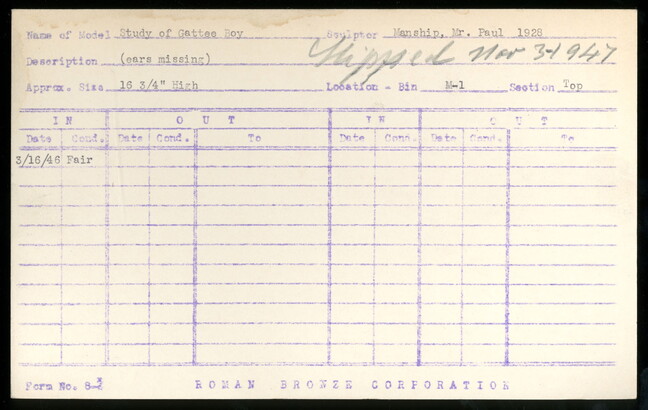 Name of Model Study of Gattee Boy Sculptor Manship, Mr. Paul 1928
Description (ears missing) Shipped Nov 3-1947
Approx. Size 16 3/4" High Location - Bin M-1 Section Top
IN OUT IN OUT
Date Cond. Date Cond. To Date Cond. Date Cond. To
3/16/46 Fair
Form No. 8-
ROMAN BRONZE CORPORATION